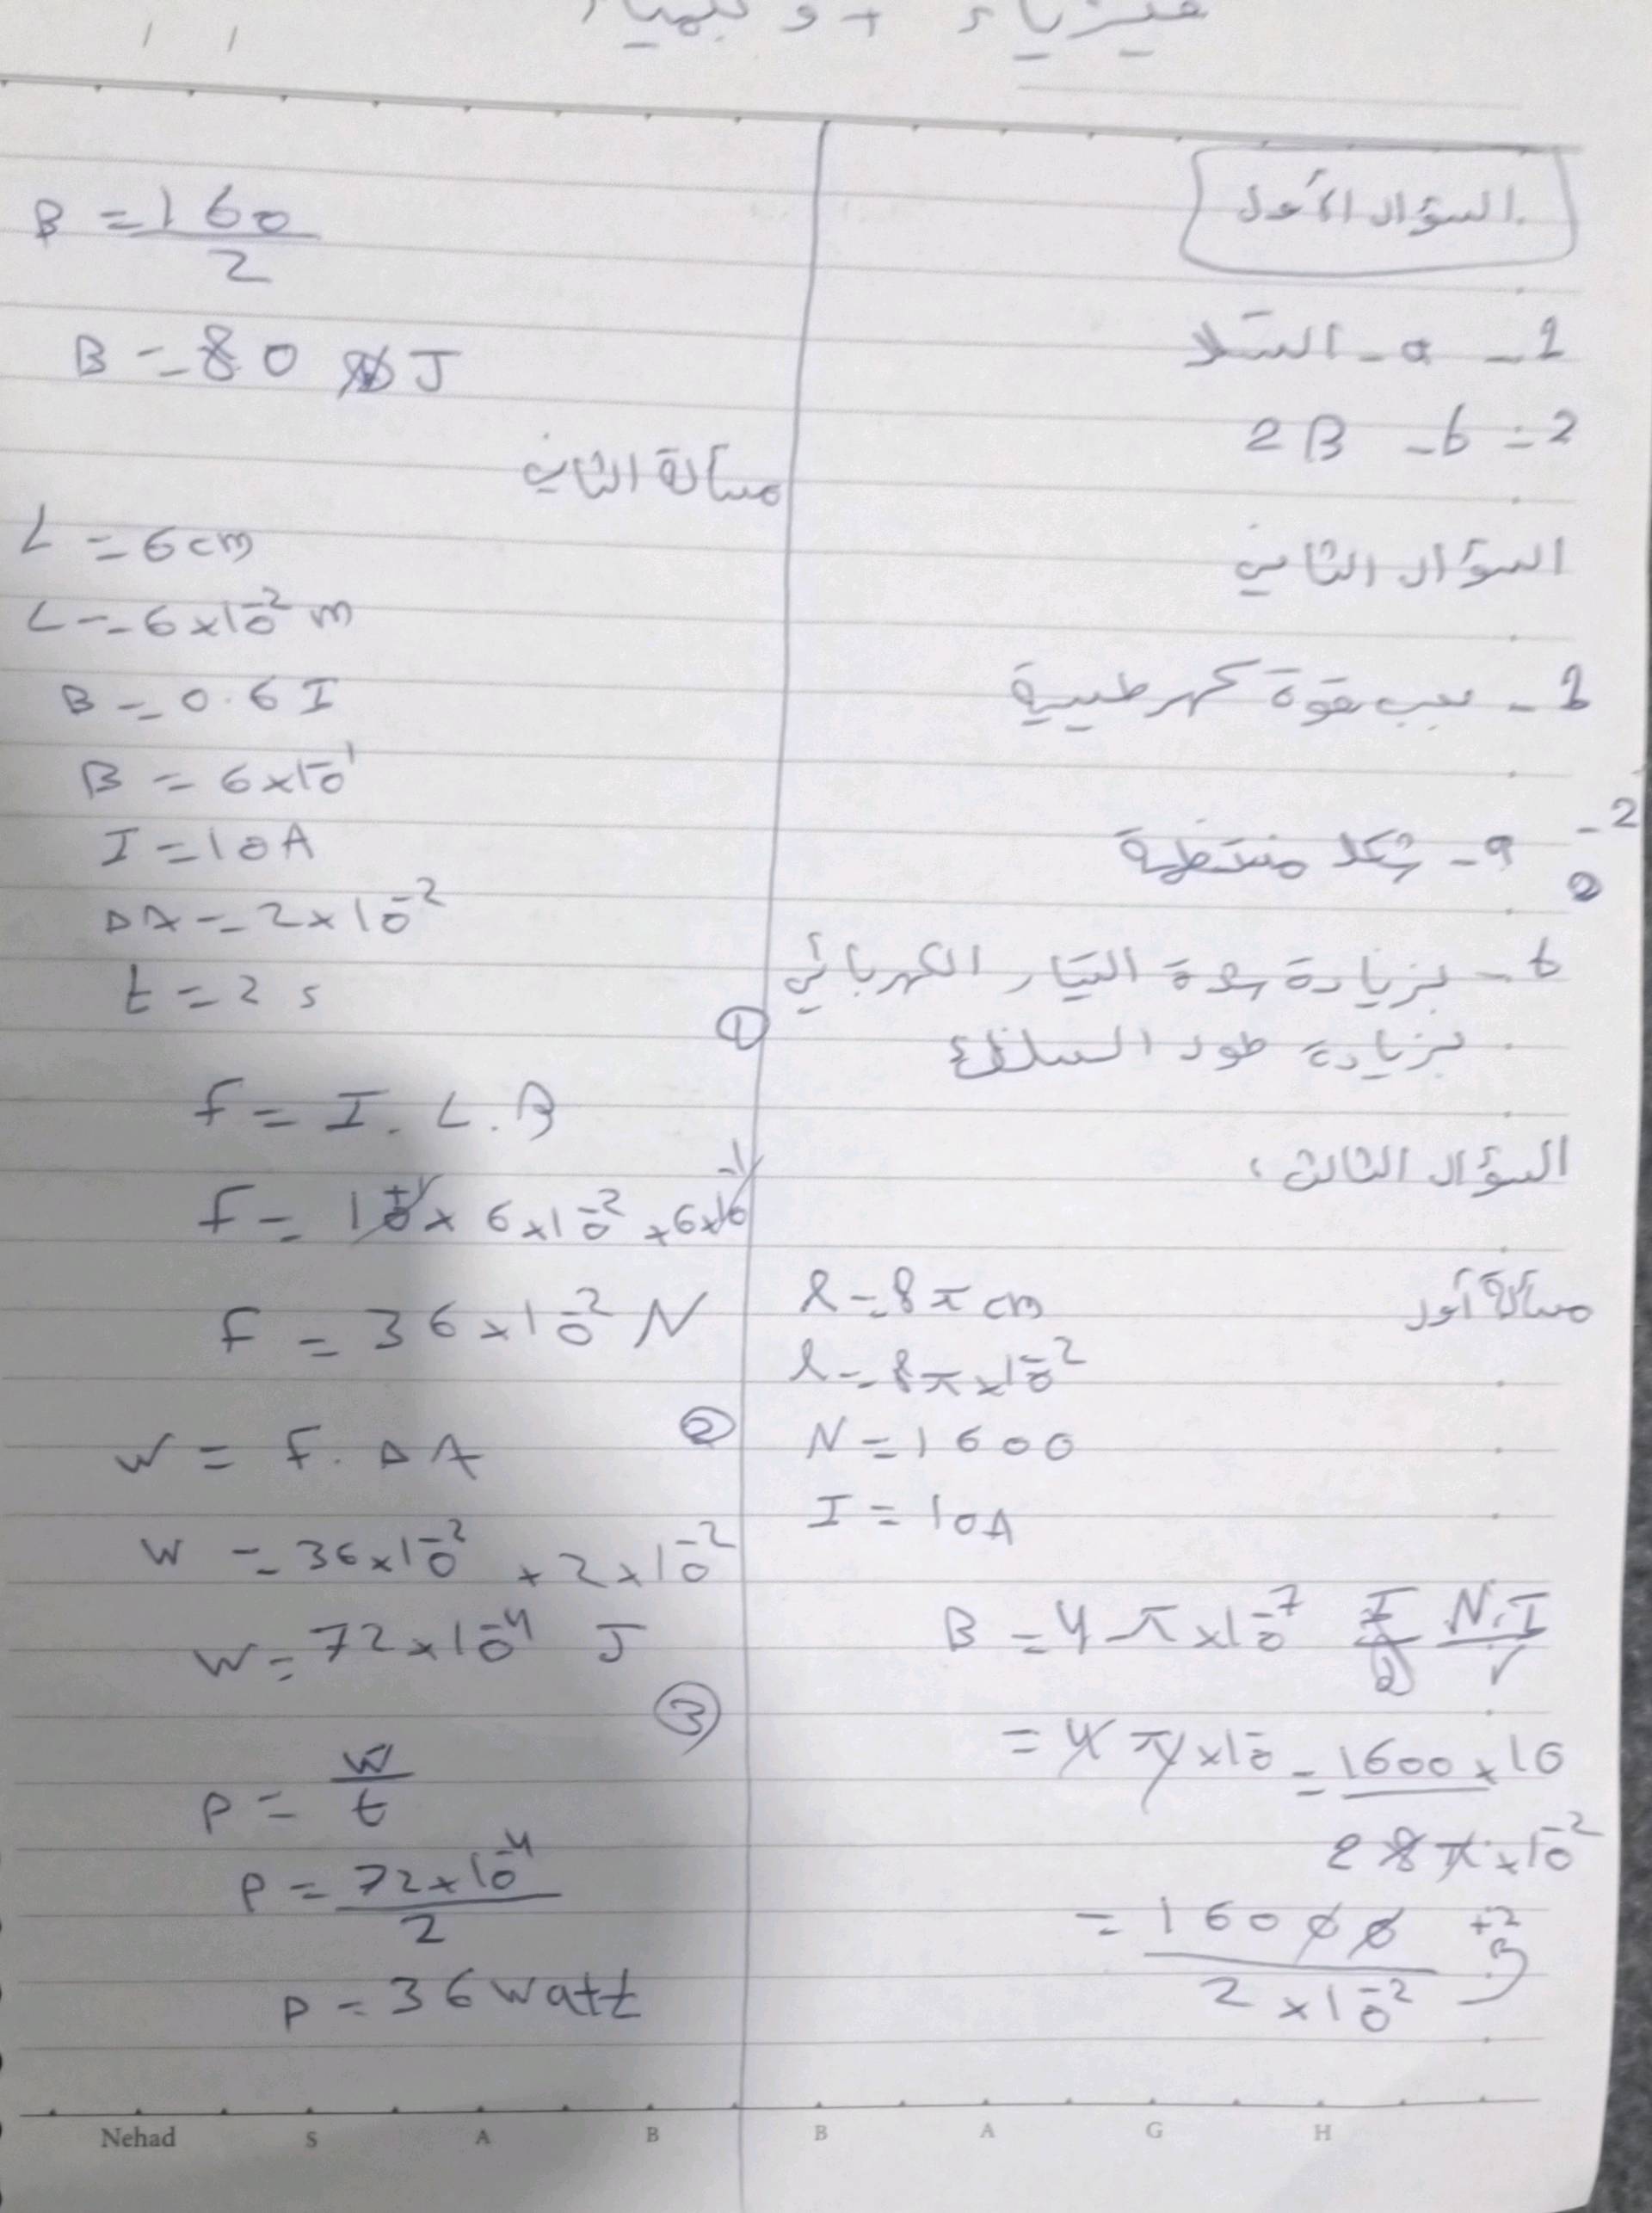 فيزياء + وكيمياء
السؤال الأول
1 - a - التسلا
2 = b - 2B
السؤال الثاني
1 - سبب بقوة كهرطيسية
2 - a - شكل منتظمة
b - بزيادة شدة التيار الكهربائي
بزيادة طول السلك
السؤال الثالث :
مسألة أول
l = 8π cm
l = 8π × 10⁻²
N = 1600
I = 10A
B = 4π × 10⁻⁷ N.I / r
= 4π × 10 = 1600 × 10
2 8π × 10⁻²
= 16000 / 2 × 10⁻² +2
B = 160 / 2
B = 80 J
مسألة الثاني
L = 6 cm
L = 6 × 10⁻² m
B = 0.6 I
B = 6 × 10⁻¹
I = 10A
ΔX = 2 × 10⁻²
t = 2 s
①
F = I . L . B
F = 10⁺¹ × 6 × 10⁻² × 6 × 10⁻¹
F = 36 × 10⁻² N
②
W = F . ΔX
W = 36 × 10⁻² × 2 × 10⁻²
W = 72 × 10⁻⁴ J
③
P = W / t
P = 72 × 10⁻⁴ / 2
P = 36 watt
Nehad S A B B A G H